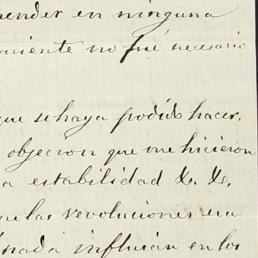 ender en ninguna
niente no fué necesario
que se haya podido hacer,
objecion que me hicieron
a estabilidad &. &.
ue las revoluciones era
nada influian en los